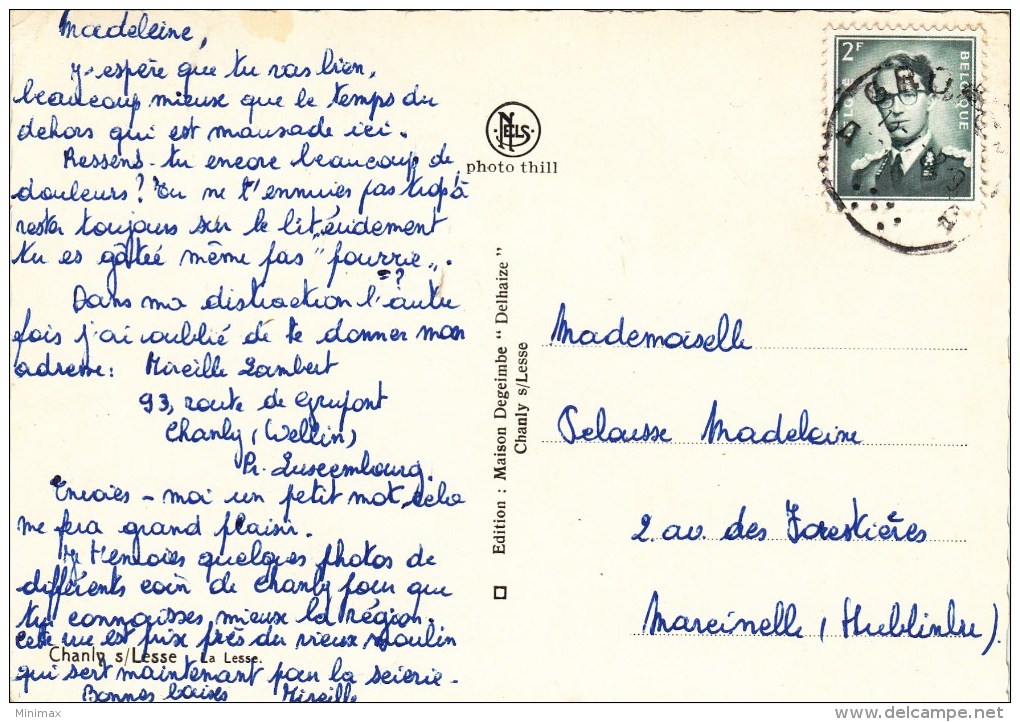 Madeleine,
J'espère que tu vas bien,
beaucoup mieux que le temps du
dehors qui est maussade ici.
Ressens-tu encore beaucoup de
douleurs? Tu ne t'ennuies pas trop à
rester toujours sur le lit, évidement
tu es gâteé même pas "pourrie".
=?
Dans ma distraction l'autre
fois j'ai oublié de te donner mon
adresse: Mireille Lambert
93, route de Grupont
Chanly, (Wellin)
Pr. Luxembourg.
Envoies-moi un petit mot, cela
me fera grand plaisir.
Je t'envoies quelques photos de
différents coin de Chanly pour que
tu connaisses mieux la région.
Cette vue est prise près du vieux moulin
Chanly s/Lesse La Lesse.
qui sert maintenant pour la scierie.
Bonnes baises Mireille
NELS
photo thill
Edition : Maison Degeimbe " Delhaize "
Chanly s/Lesse
2F
BELGIQUE
Mademoiselle
Pelausse Madeleine
2 av. des Forestières
Marcinelle, (Hublinbu).
Minimax
www.delcampe.net